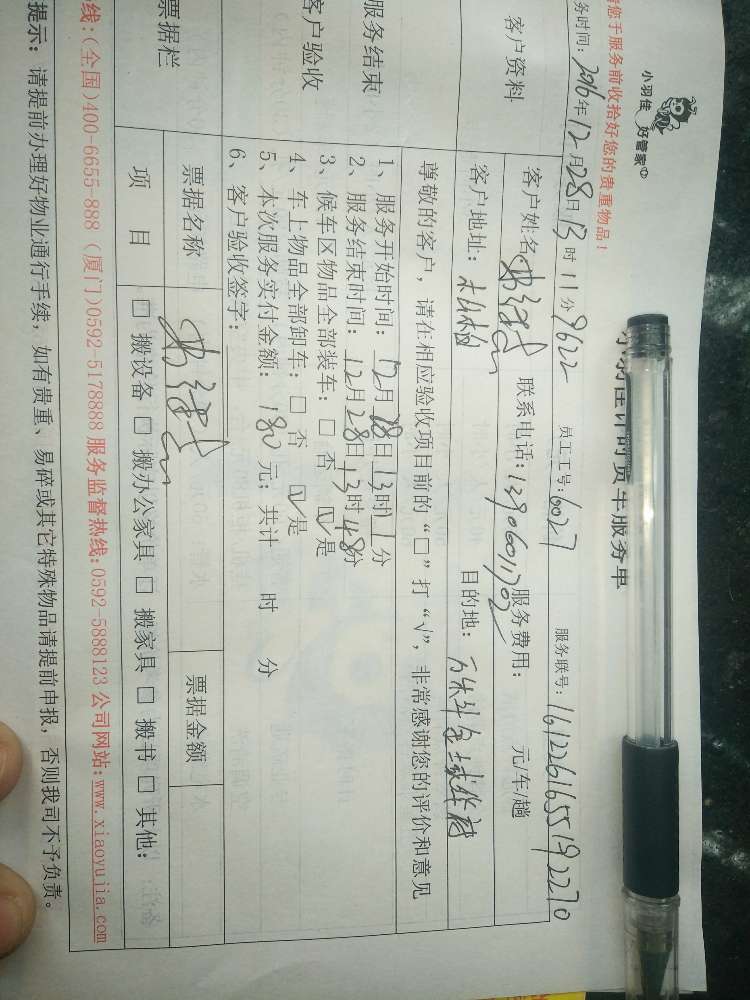 小羽佳 好管家
小羽佳计时货车服务单
请您于服务前收拾好您的贵重物品！
务时间：2016年12月28日13时11分 9622 员工工号：16027 服务联号：1612261655192270
客户资料
客户姓名 联系电话：13906011702 服务费用： 元/车/趟
客户地址： 目的地：
服务结束
客户验收
尊敬的客户，请在相应验收项目前的“□”打“√”，非常感谢您的评价和意见
1、服务开始时间：12月28日13时11分
2、服务结束时间：12月28日13时48分
3、候车区物品全部装车：□ 否 ☑是
4、车上物品全部卸车：□ 否 ☑是
5、本次服务实付金额：180元；共计 时 分
6、客户验收签字：
票据栏
票据名称 票据金额
项 目 □ 搬设备 □ 搬办公家具 □ 搬家具 □ 搬书 □ 其他：
线：(全国)400-6655-888 (厦门)0592-5178888 服务监督热线：0592-5888123 公司网站：www.xiaoyujia.com
提示：请提前办理好物业通行手续，如有贵重、易碎或其它特殊物品请提前申报，否则我司不予负责。